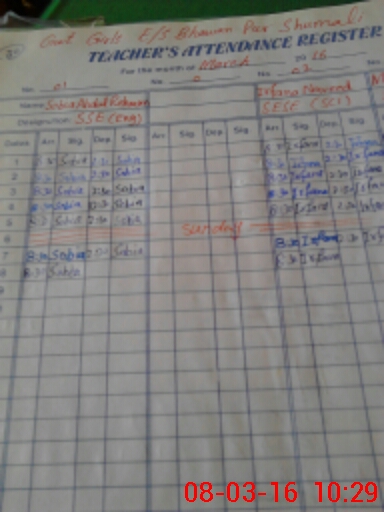 Govt Girls E/S Bhawan Pur Shumali
TEACHER'S ATTENDANCE REGISTER
For the month of March 2016
No. 01 No. 0 No. 02
Name Sobia Abdul Rehman Irfana Naveed
Designation SSE (Eng) SESE (SCI)
Dates Arr. Sig. Dep. Sig. Arr. Sig. Dep. Sig. Arr. Sig. Dep. Sig.
1 8:30 Sobia 2:30 Sobia 8:30 Irfana 2:30 Irfana
2 8:30 Sobia 2:30 Sobia 8:30 Irfana 2:30 Irfana
3 8:30 Sobia 2:30 Sobia 8:30 Irfana 2:30 Irfana
4 8:30 Sobia 12:30 Sobia 8:30 Irfana 2:30 Irfana
5 8:30 Sobia 2:30 Sobia 8:30 Irfana 2:30 Irfana
6 Sunday
7 8:30 Sobia 2:30 Sobia 8:30 Irfana 2:30 Irfana
8 8:30 Sobia 8:30 Irfana
08-03-16 10:29